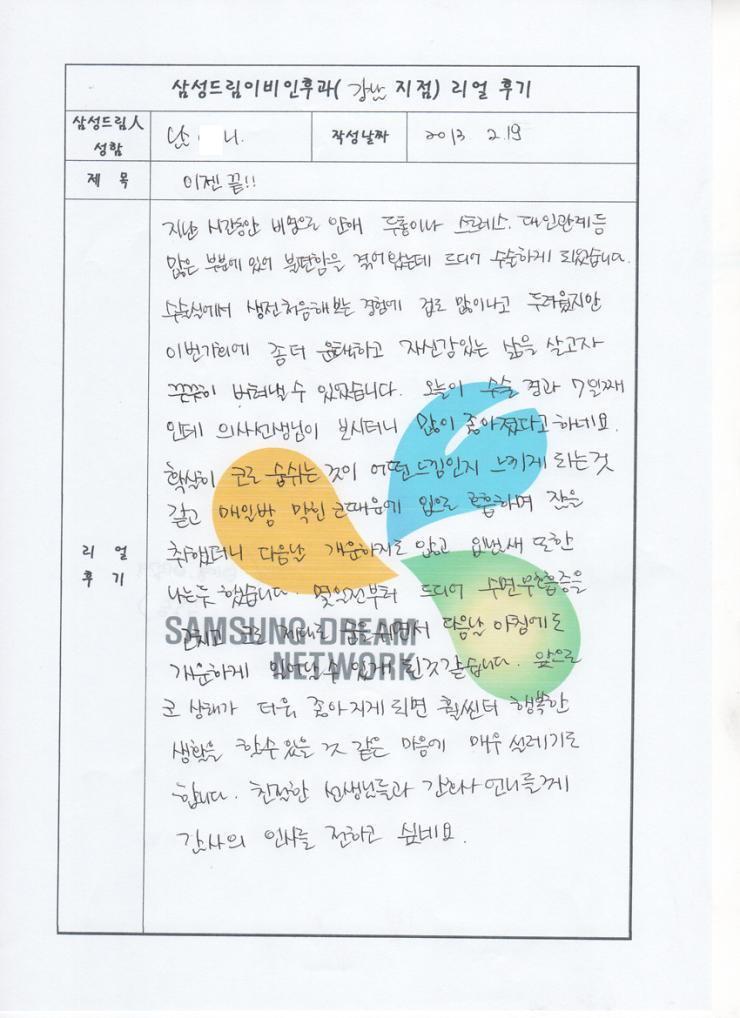 삼성드림이비인후과( 강남 지점) 리얼 후기
삼성드림人 성함
난 니.
작성날짜
2013. 2.19
제 목
이젠 끝!!
리 얼 후 기
지난 시간동안 비염으로 인해 두통이나 스트레스. 대인관계등
많은 부분에 있어 불편함을 겪어 왔는데 드디어 수술하게 되었습니다.
수술실에서 생전처음해보는 경험에 겁도 많이나고 두려웠지만
이번기회에 좀더 윤택하고 자신감있는 삶을 살고자
꿋꿋히 버텨낼 수 있었습니다. 오늘이 수술 경과 7일째
인데 의사선생님이 보시더니 많이 좋아졌다고 하네요.
확실히 코로 숨쉬는 것이 어떤느낌인지 느끼게 되는것
같고 매일밤 막힌 코때문에 입으로 호흡하며 잠을
취했더니 다음날 개운하지도 않고 입냄새 또한
나는듯 했습니다. 몇일전부터 드디어 수면무호흡증을
고치고 코로 제대로 숨을 쉬면서 다음날 아침에도
개운하게 일어날 수 있게 된것같습니다. 앞으로
코 상태가 더욱 좋아지게 되면 훨씬더 행복한
생활을 할수있을 것 같은 마음에 매우 설레기도
합니다. 친절한 선생님들과 간호사 언니들께
감사의 인사를 전하고 싶네요.
SAMSUNG DREAM
NETWORK